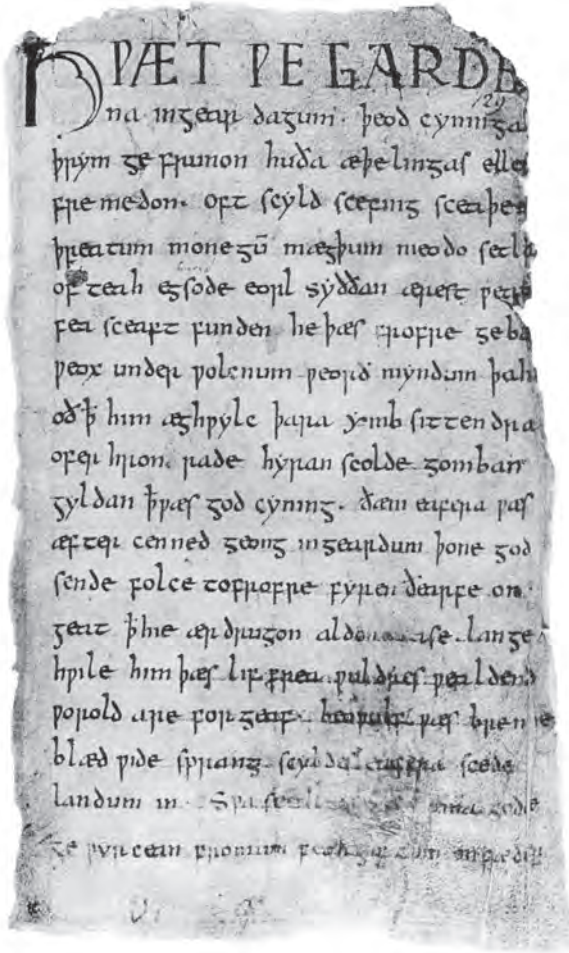 HǷÆT ǷE GARDE
na ingear dagum. þeod cyninga
þrym ge frunon huða æþelingas elle
fre medon. oft scyld scefing sceaþe
þreatum monegū mægþum meodo setl
of teah egsode eorl syððan ærest ƿear
fea sceaft funden he þæs frofre geba
ƿeox under ƿolcnum ƿeorð myndum þah
oð ꝥ him æghƿylc þara ymb sittendra
ofer hron rade hyran scolde gomban
gyldan ꝥ ƿæs god cyning. ðæm eafera ƿæs
æfter cenned geong ingeardum þone god
sende folce tofrofre fyren ðearfe on
geat ꝥ hie ær drugon aldor ase. lange
hƿile him þæs lif frea ƿuldres ƿealdend
ƿorold are for geaf. beoƿulf ƿæs breme
blæd ƿide sprang scyldes eafera scede
landum in. Sƿa guma gode
ge ƿyrcean fromum feoh giftum